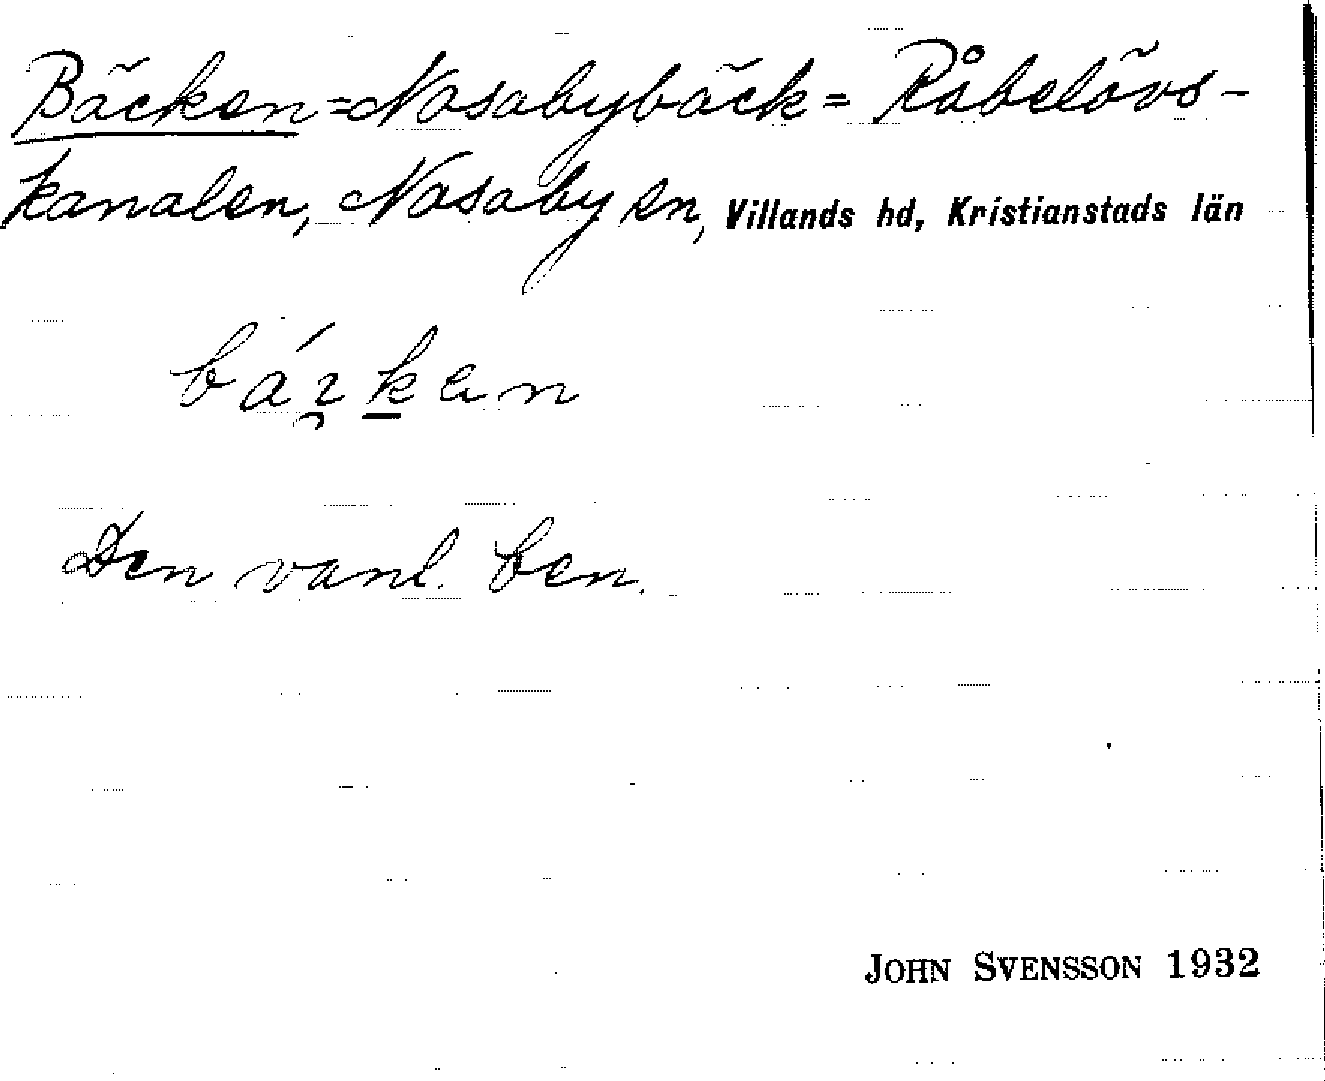 Bäcken = Nosabybäck = Råbelövs-
kanalen, Nosaby sn, Villands hd, Kristianstads län
Den vanl. ben.
JOHN SVENSSON 1932